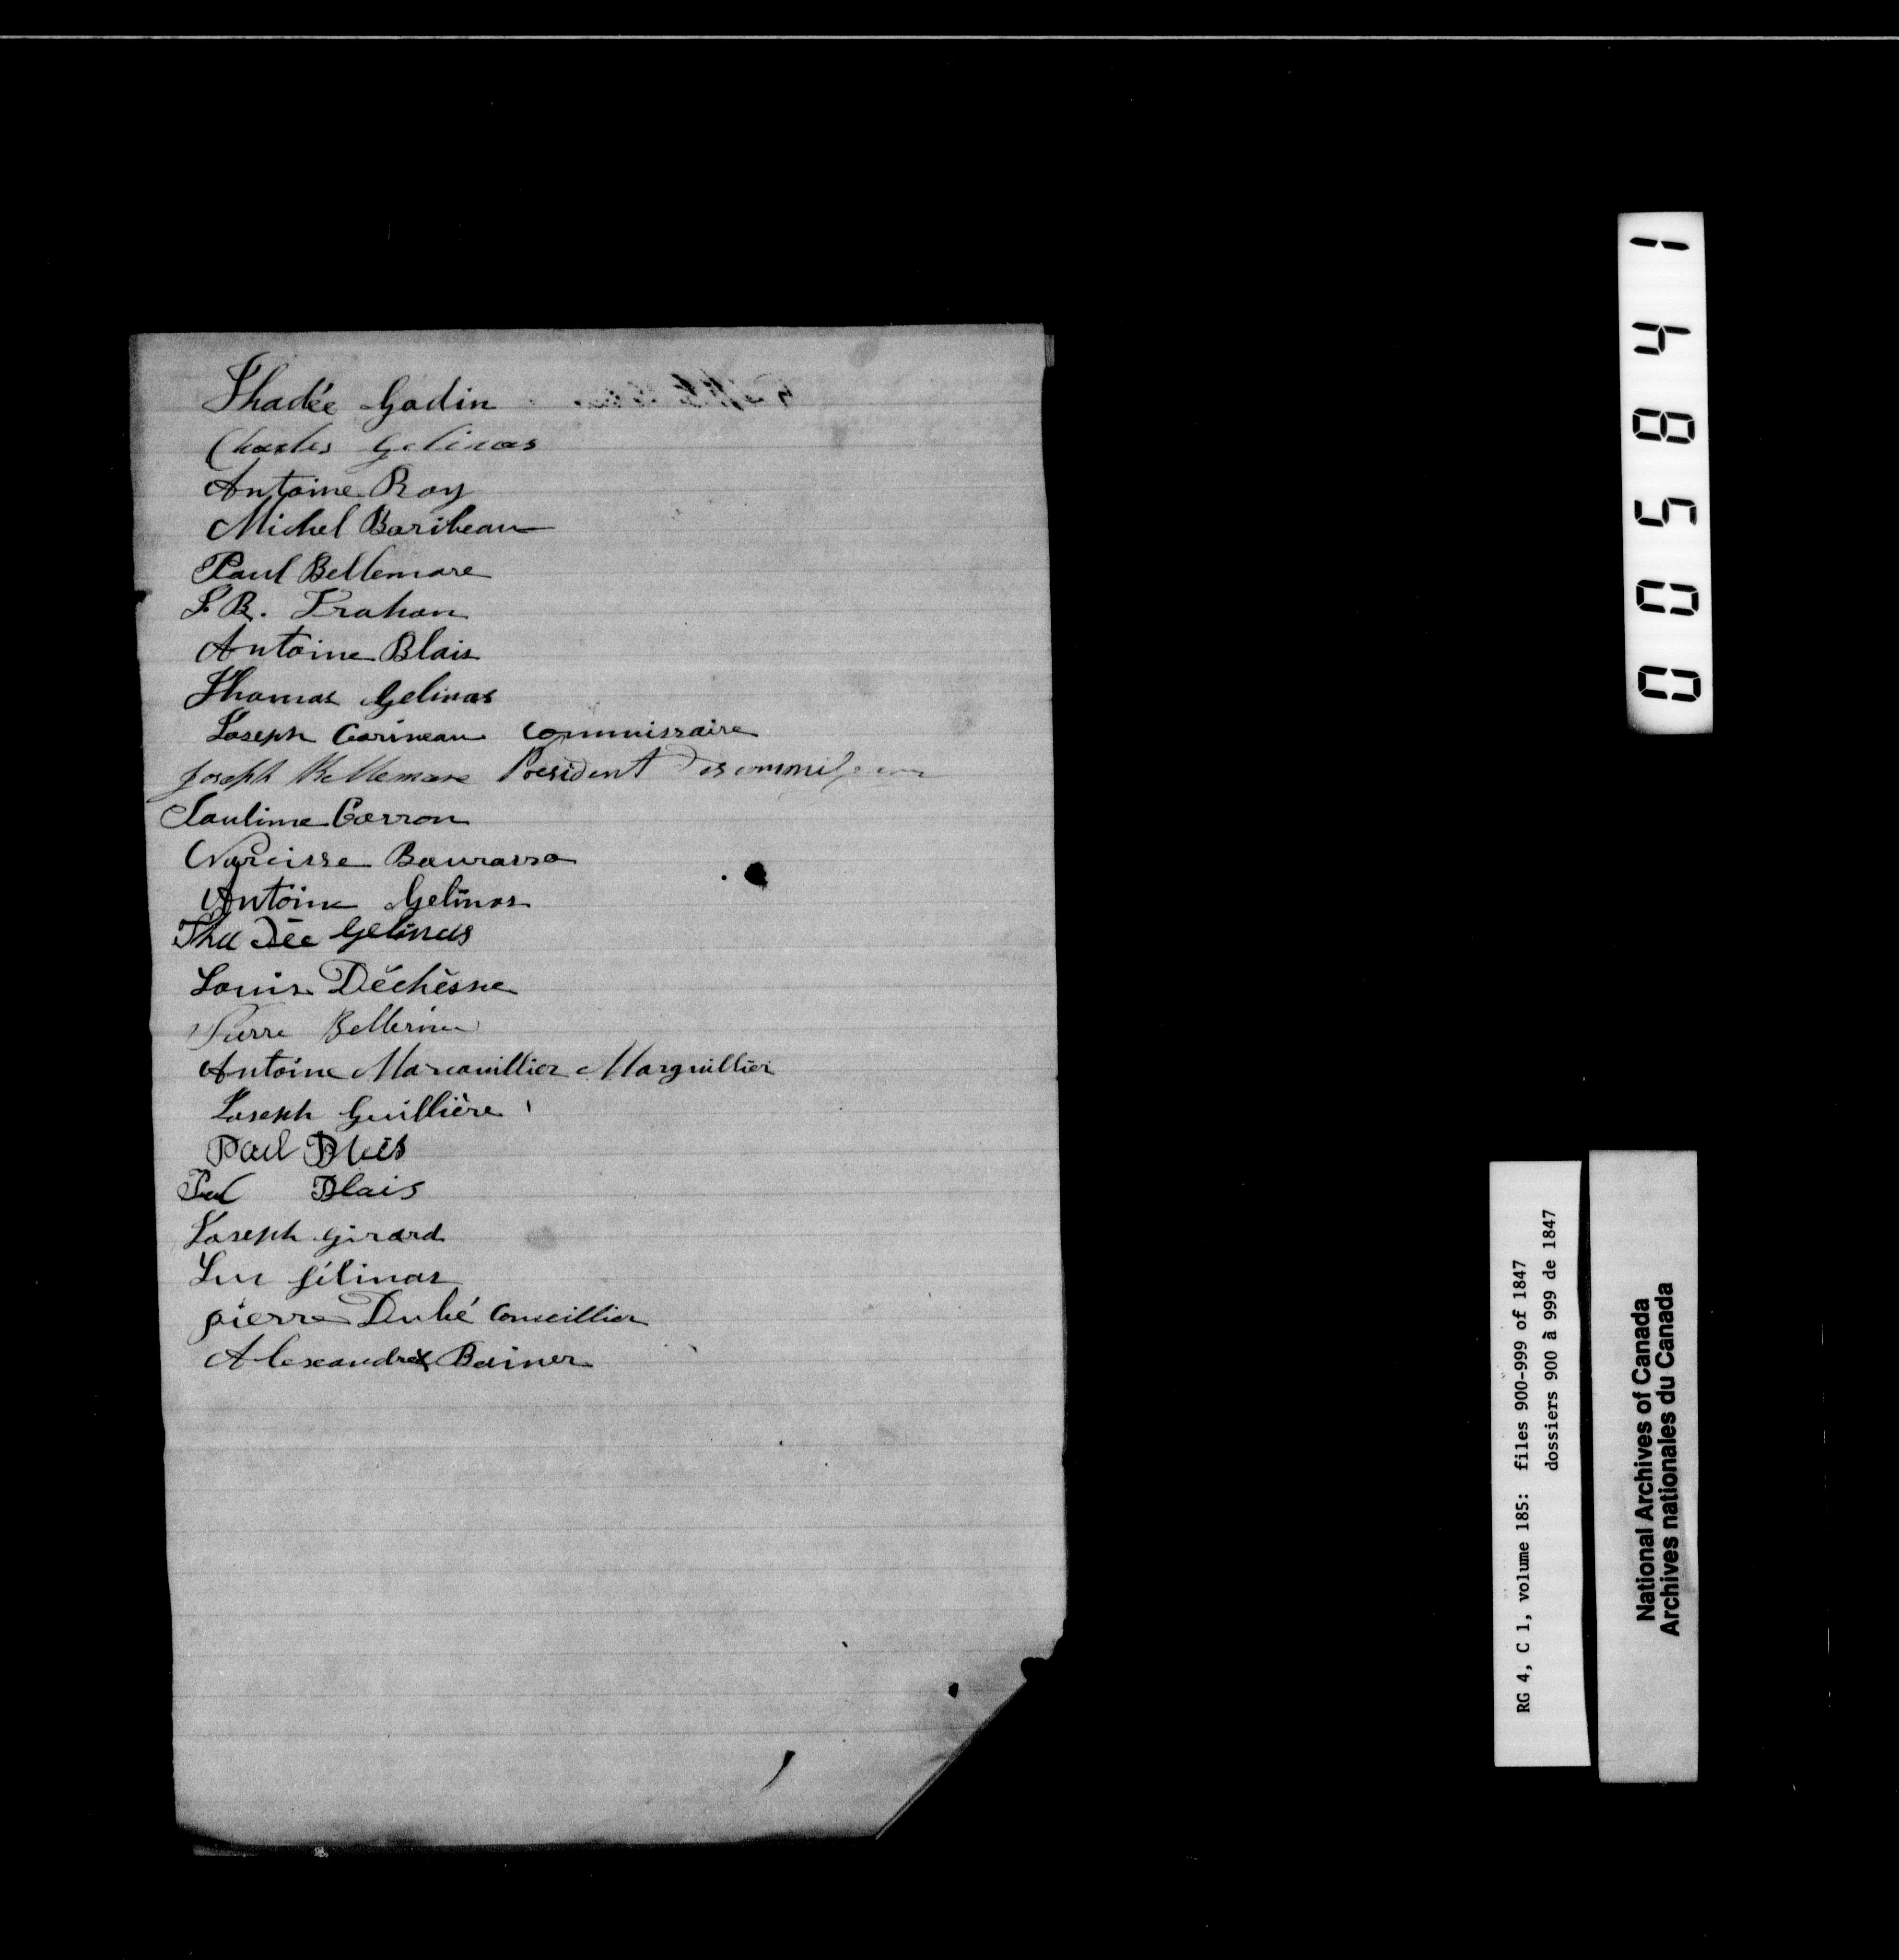 Thadée Godin
Charles Gelinas
Antoine Roy
Michel Baribeau
Paul Bellemare
J. B. Trahan
Antoine Blais
Thomas Gelinas
Joseph Garineau commissaire
Joseph Bellemare President des
Narcisse Bourassa
Antoine Gelinas
Thadée Gelinas
Louis Déchèsne
Pierre
Antoine Marcouillier Marguillier
Joseph Guillière
Paul Bleis
Pal Blais
Joseph girard
Luc gélinas
pierre Dubé Conseillier
Alexandre
054841
RG 4, C 1, volume 185: files 900-999 of 1847
dossiers 900 à 999 de 1847
National Archives of Canada
Archives nationales du Canada